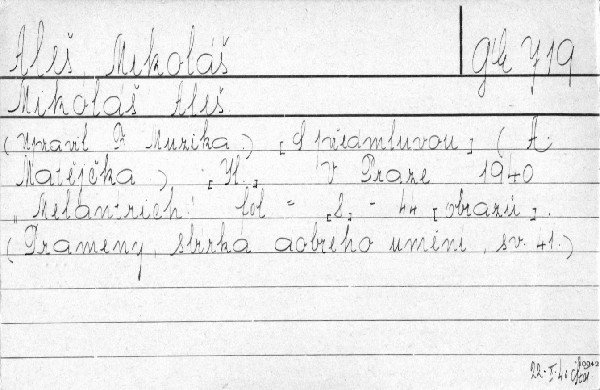 Aleš, Mikoláš gk 719
Mikoláš Aleš.
(Upravil F. Muzika.) [S předmluvou] (A.
Matějčka.) [Il.] V Praze 1940
"Melantrich" fol - [8] - 44 [obrazů].
(Prameny, sbírka dobrého umění, sv. 41.)
22-I-41